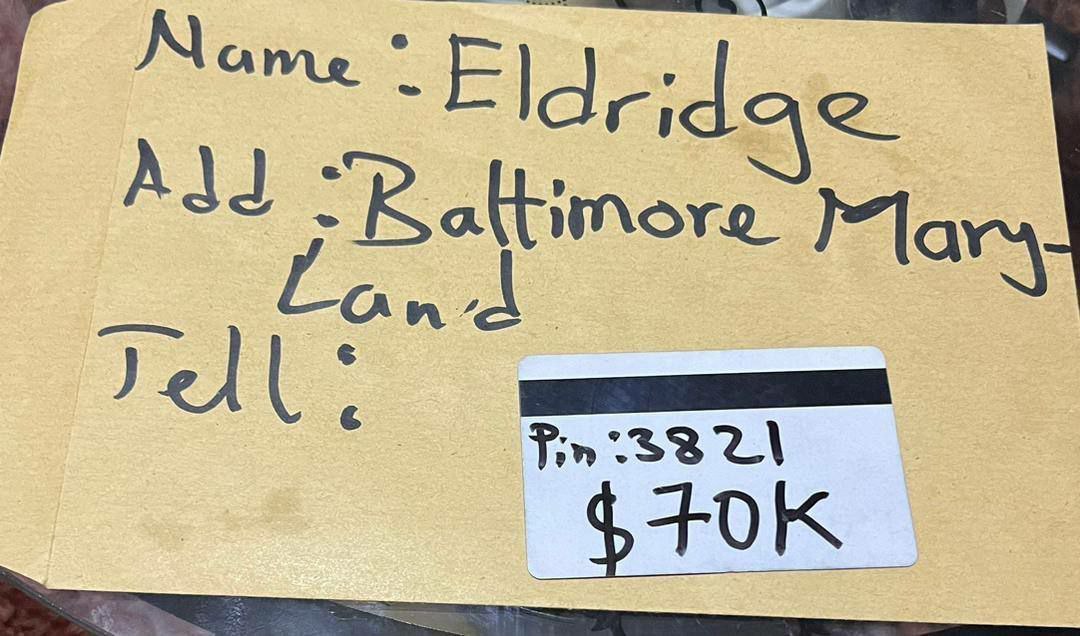 Name : Eldridge
Add : Baltimore Mary-
Land
Tell :
Pin : 3821
$70K